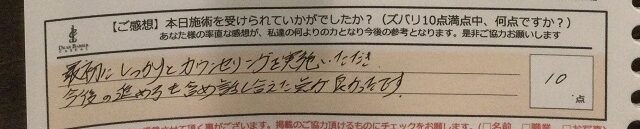 【ご感想】本日施術を受けられていかがでしたか？（ズバリ10点満点中、何点ですか？）
あなた様の率直な感想が、私達の何よりの力となり今後の参考となります。是非ご協力お願いします
最初にしっかりとカウンセリングを実施いただき
今後の進め方も含め話し合えた点が良かったです。
10
点
頂く事がございます。掲載のご協力頂けるものにチェックをお願いします。（□名前 □職業 □お写真